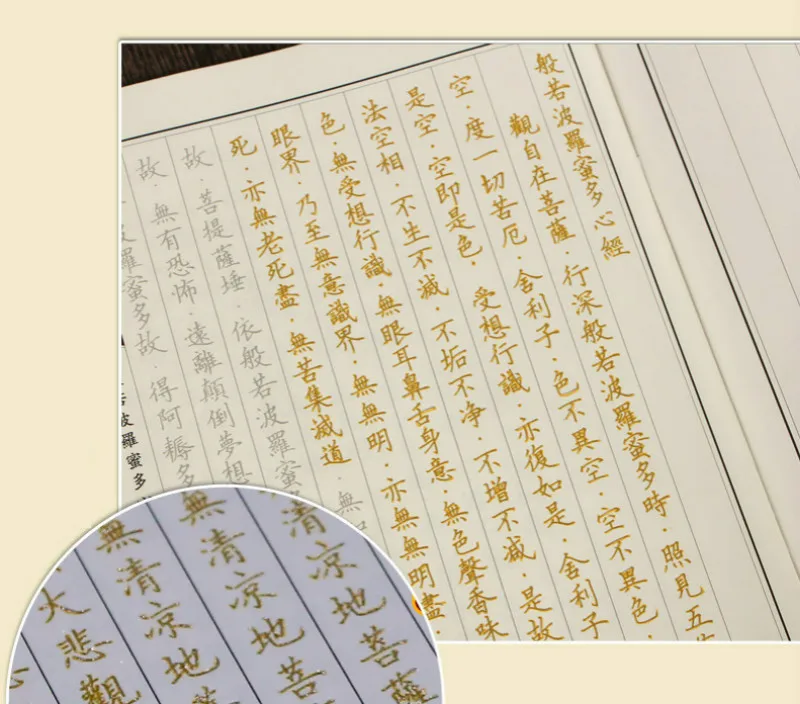 般若波羅蜜多心經
觀自在菩薩·行深般若波羅蜜多時·照見五
空·度一切苦厄·舍利子·色不異空·空不異色·
是空·空即是色·受想行識·亦復如是·舍利子
法空相·不生不滅·不垢不净·不增不減·是故
色·無受想行識·無眼耳鼻舌身意·無色聲香味
眼界·乃至無意識界·無無明·亦無無明盡·
死·亦無老死盡·無苦集滅道·無
故·菩提薩埵·依般若波羅蜜
故·無有恐怖·遠離顛倒夢想
波羅蜜多故·得阿耨多
若波羅蜜多
清凉地菩薩
無清凉地菩
無清凉地
大悲觀